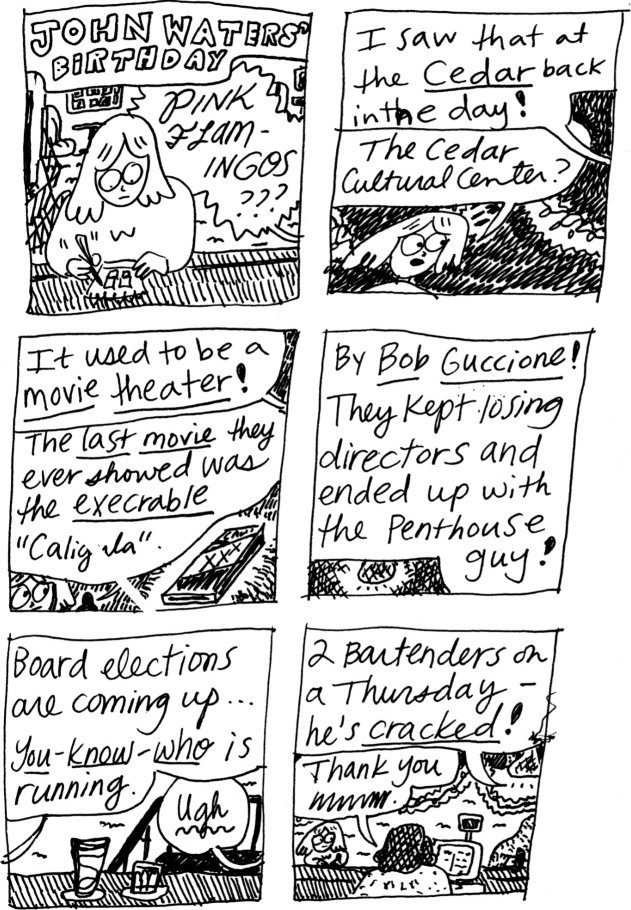 JOHN WATERS'
BIRTHDAY
PINK
FLAM-
INGOS
???
I saw that at
the Cedar back
in the day!
The Cedar
Cultural Center?
It used to be a
movie theater!
The last movie they
ever showed was
the execrable
"Caligula".
XXX
By Bob Guccione!
They kept losing
directors and
ended up with
the Penthouse
guy!
Board elections
are coming up...
You-know-who is
running.
Ugh
2 Bartenders on
a Thursday -
he's cracked!
Thank you